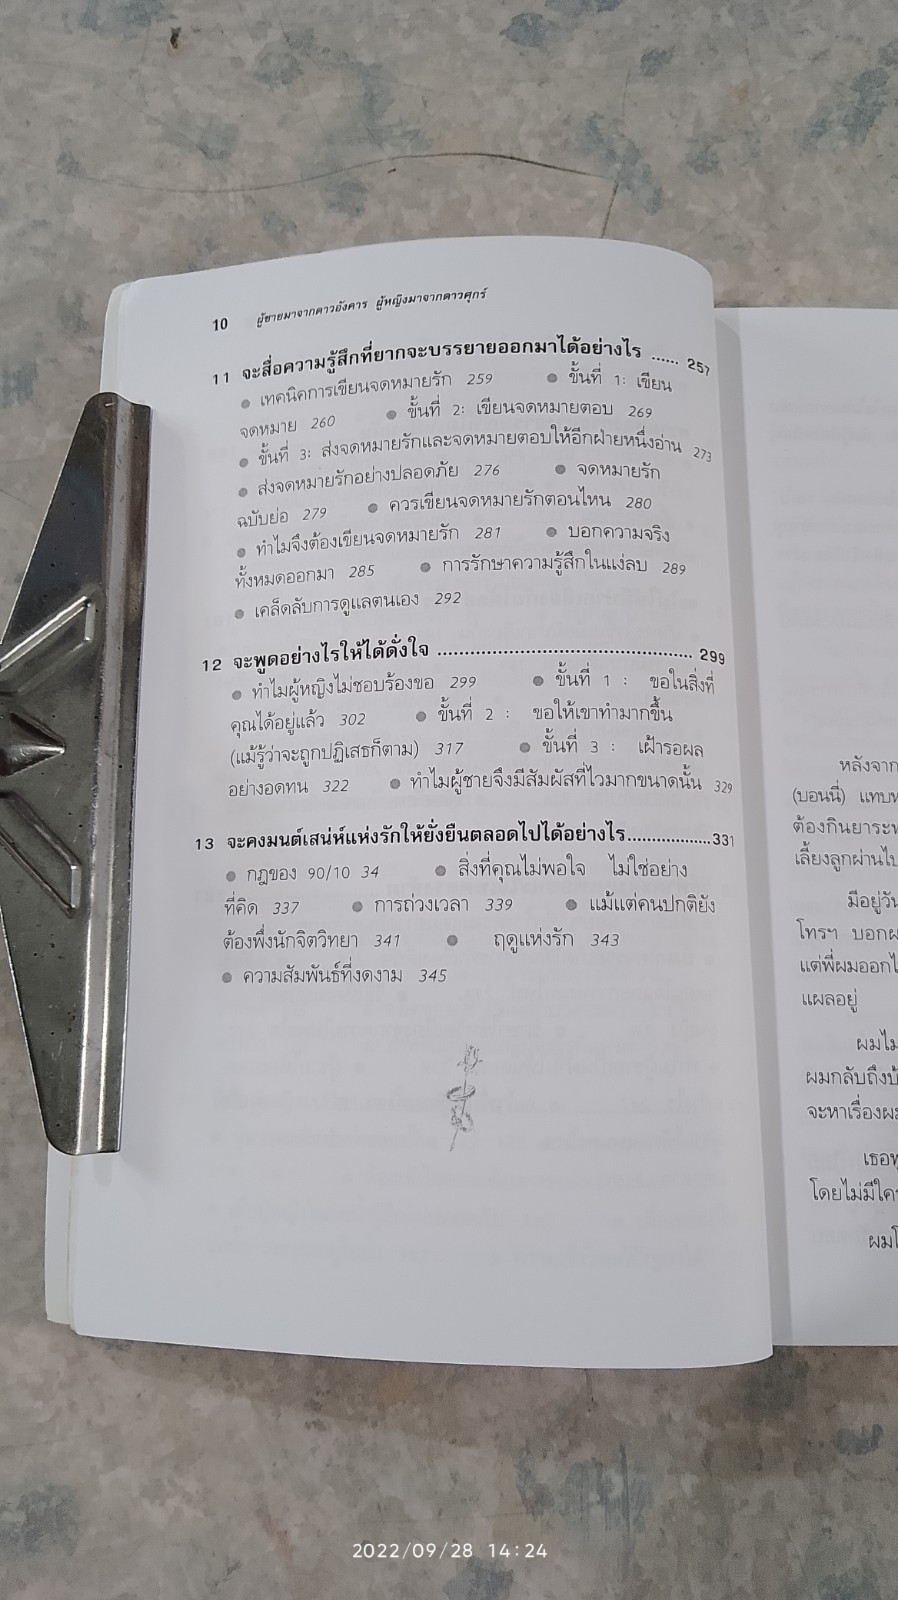 10 ผู้ชายมาจากดาวอังคาร ผู้หญิงมาจากดาวศุกร์
11 จะสื่อความรู้สึกที่ยากจะบรรยายออกมาได้อย่างไร ...... 257
● เทคนิคการเขียนจดหมายรัก 259 ● ขั้นที่ 1: เขียน
จดหมาย 260 ● ขั้นที่ 2: เขียนจดหมายตอบ 269
● ขั้นที่ 3: ส่งจดหมายรักและจดหมายตอบให้อีกฝ่ายหนึ่งอ่าน 273
● ส่งจดหมายรักอย่างปลอดภัย 276 ● จดหมายรัก
ฉบับย่อ 279 ● ควรเขียนจดหมายรักตอนไหน 280
● ทำไมจึงต้องเขียนจดหมายรัก 281 ● บอกความจริง
ทั้งหมดออกมา 285 ● การรักษาความรู้สึกในแง่ลบ 289
● เคล็ดลับการดูแลตนเอง 292
12 จะพูดอย่างไรให้ได้ดั่งใจ ............................................ 299
● ทำไมผู้หญิงไม่ชอบร้องขอ 299 ● ขั้นที่ 1 : ขอในสิ่งที่
คุณได้อยู่แล้ว 302 ● ขั้นที่ 2 : ขอให้เขาทำมากขึ้น
(แม้รู้ว่าจะถูกปฏิเสธก็ตาม) 317 ● ขั้นที่ 3 : เฝ้ารอผล
อย่างอดทน 322 ● ทำไมผู้ชายจึงมีสัมผัสที่ไวมากขนาดนั้น 329
13 จะคงมนต์เสน่ห์แห่งรักให้ยั่งยืนตลอดไปได้อย่างไร..................331
● กฎของ 90/10 34 ● สิ่งที่คุณไม่พอใจ ไม่ใช่อย่าง
ที่คิด 337 ● การถ่วงเวลา 339 ● แม้แต่คนปกติยัง
ต้องพึ่งนักจิตวิทยา 341 ● ฤดูแห่งรัก 343
● ความสัมพันธ์ที่งดงาม 345
หลังจาก
(บอนนี่) แทบ
ต้องกินยาระ
เลี้ยงลูกผ่านไป
มีอยู่วัน
โทรฯ บอก
แต่พี่ผมออก
แผลอยู่
ผมไม่
ผมกลับถึง
จะหาเรื่อง
เธอ
โดยไม่มีใคร
ผม
2022/09/28 14:24